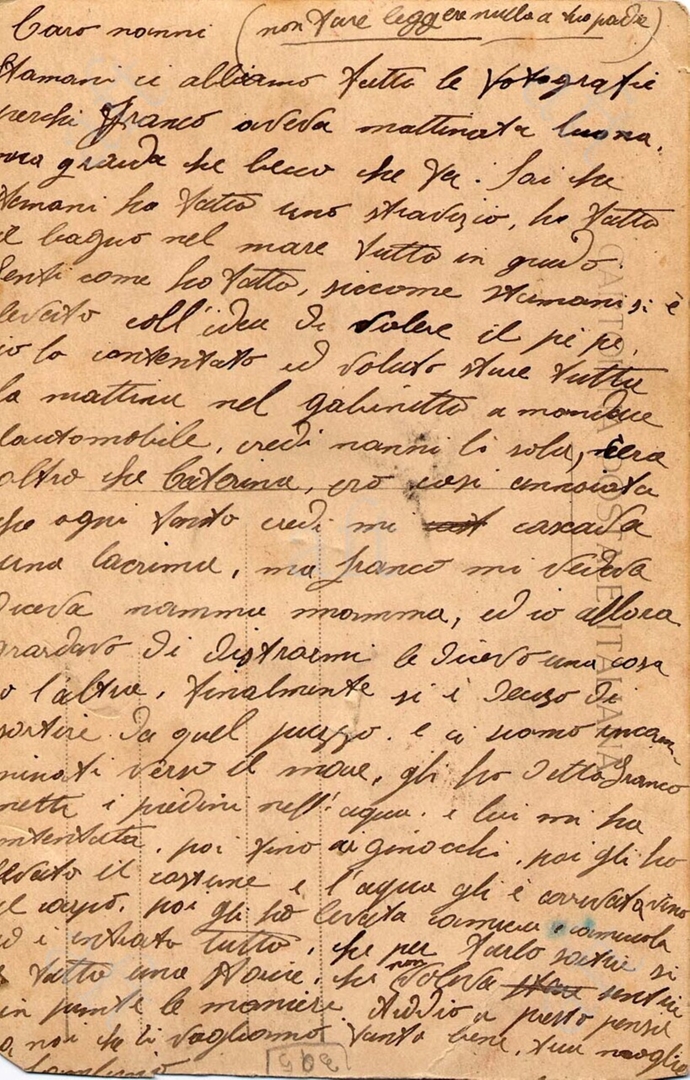 Caro nanni (non fare leggere nulla a tuo padre)
stamani ci abbiamo fatto le fotografie
perchi Franco aveva mattinata buona,
ma guarda che becco che fa. Sai che
stamani ho fatto uno stravizio, ho fatto
il bagno nel mare tutto in giudo.
senti come ho fatto, siccome stamani si è
levato coll'idea di volere il pi pi,
io lo contentato ed voluto stare tutta
la mattina nel gabinetto a mandare
lautomobile, credi nanni li sola, cera
altro che Caterina, ero cosi annoiata
che ogni tanto credi mi cascava
una lacrima, ma franco mi vedeva
diceva mamma mamma, ed io allora
guardavo di distrarmi le dicevo una cosa
o l'altra, finalmente si è deciso di
sortire da quel puzzo. e ci siamo incam-
minati verso il mare, gli ho detto Franco
metti i piedini nell'acqua. e lui mi ha
contentata, poi fino ai ginocchi, poi gli ho
levato il costume e l'acqua gli è arrivata fino
al corpo. poi gli ho levata camicia e camiciola
ed è entrato tutto, che per farlo sortire si
è fatto una storia, che non voleva sortire
in punte le maniere. Addio a presto pensa
a noi che ti vogliamo tanto bene, tua moglie
bambino
CARTOLINA POSTALE ITALIANA
395